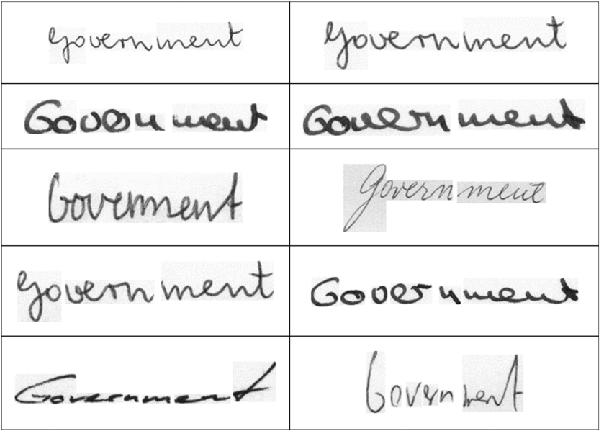 Government Government
Government Government
Government Government
Government Government
Government Government